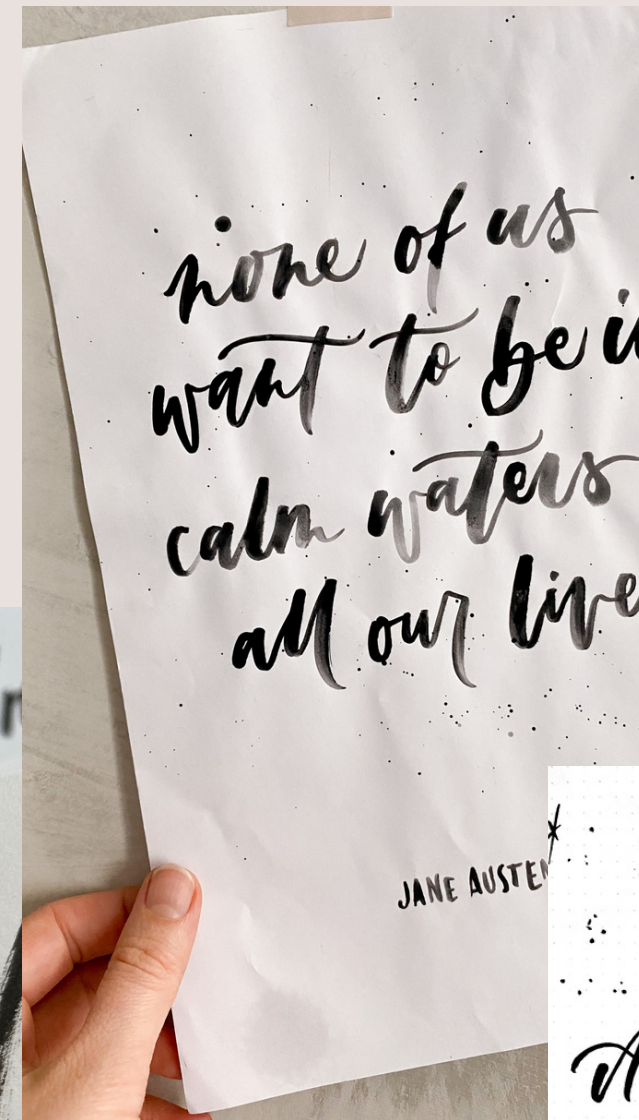 none of us
want to be i
calm waters
all our live
JANE AUSTEN